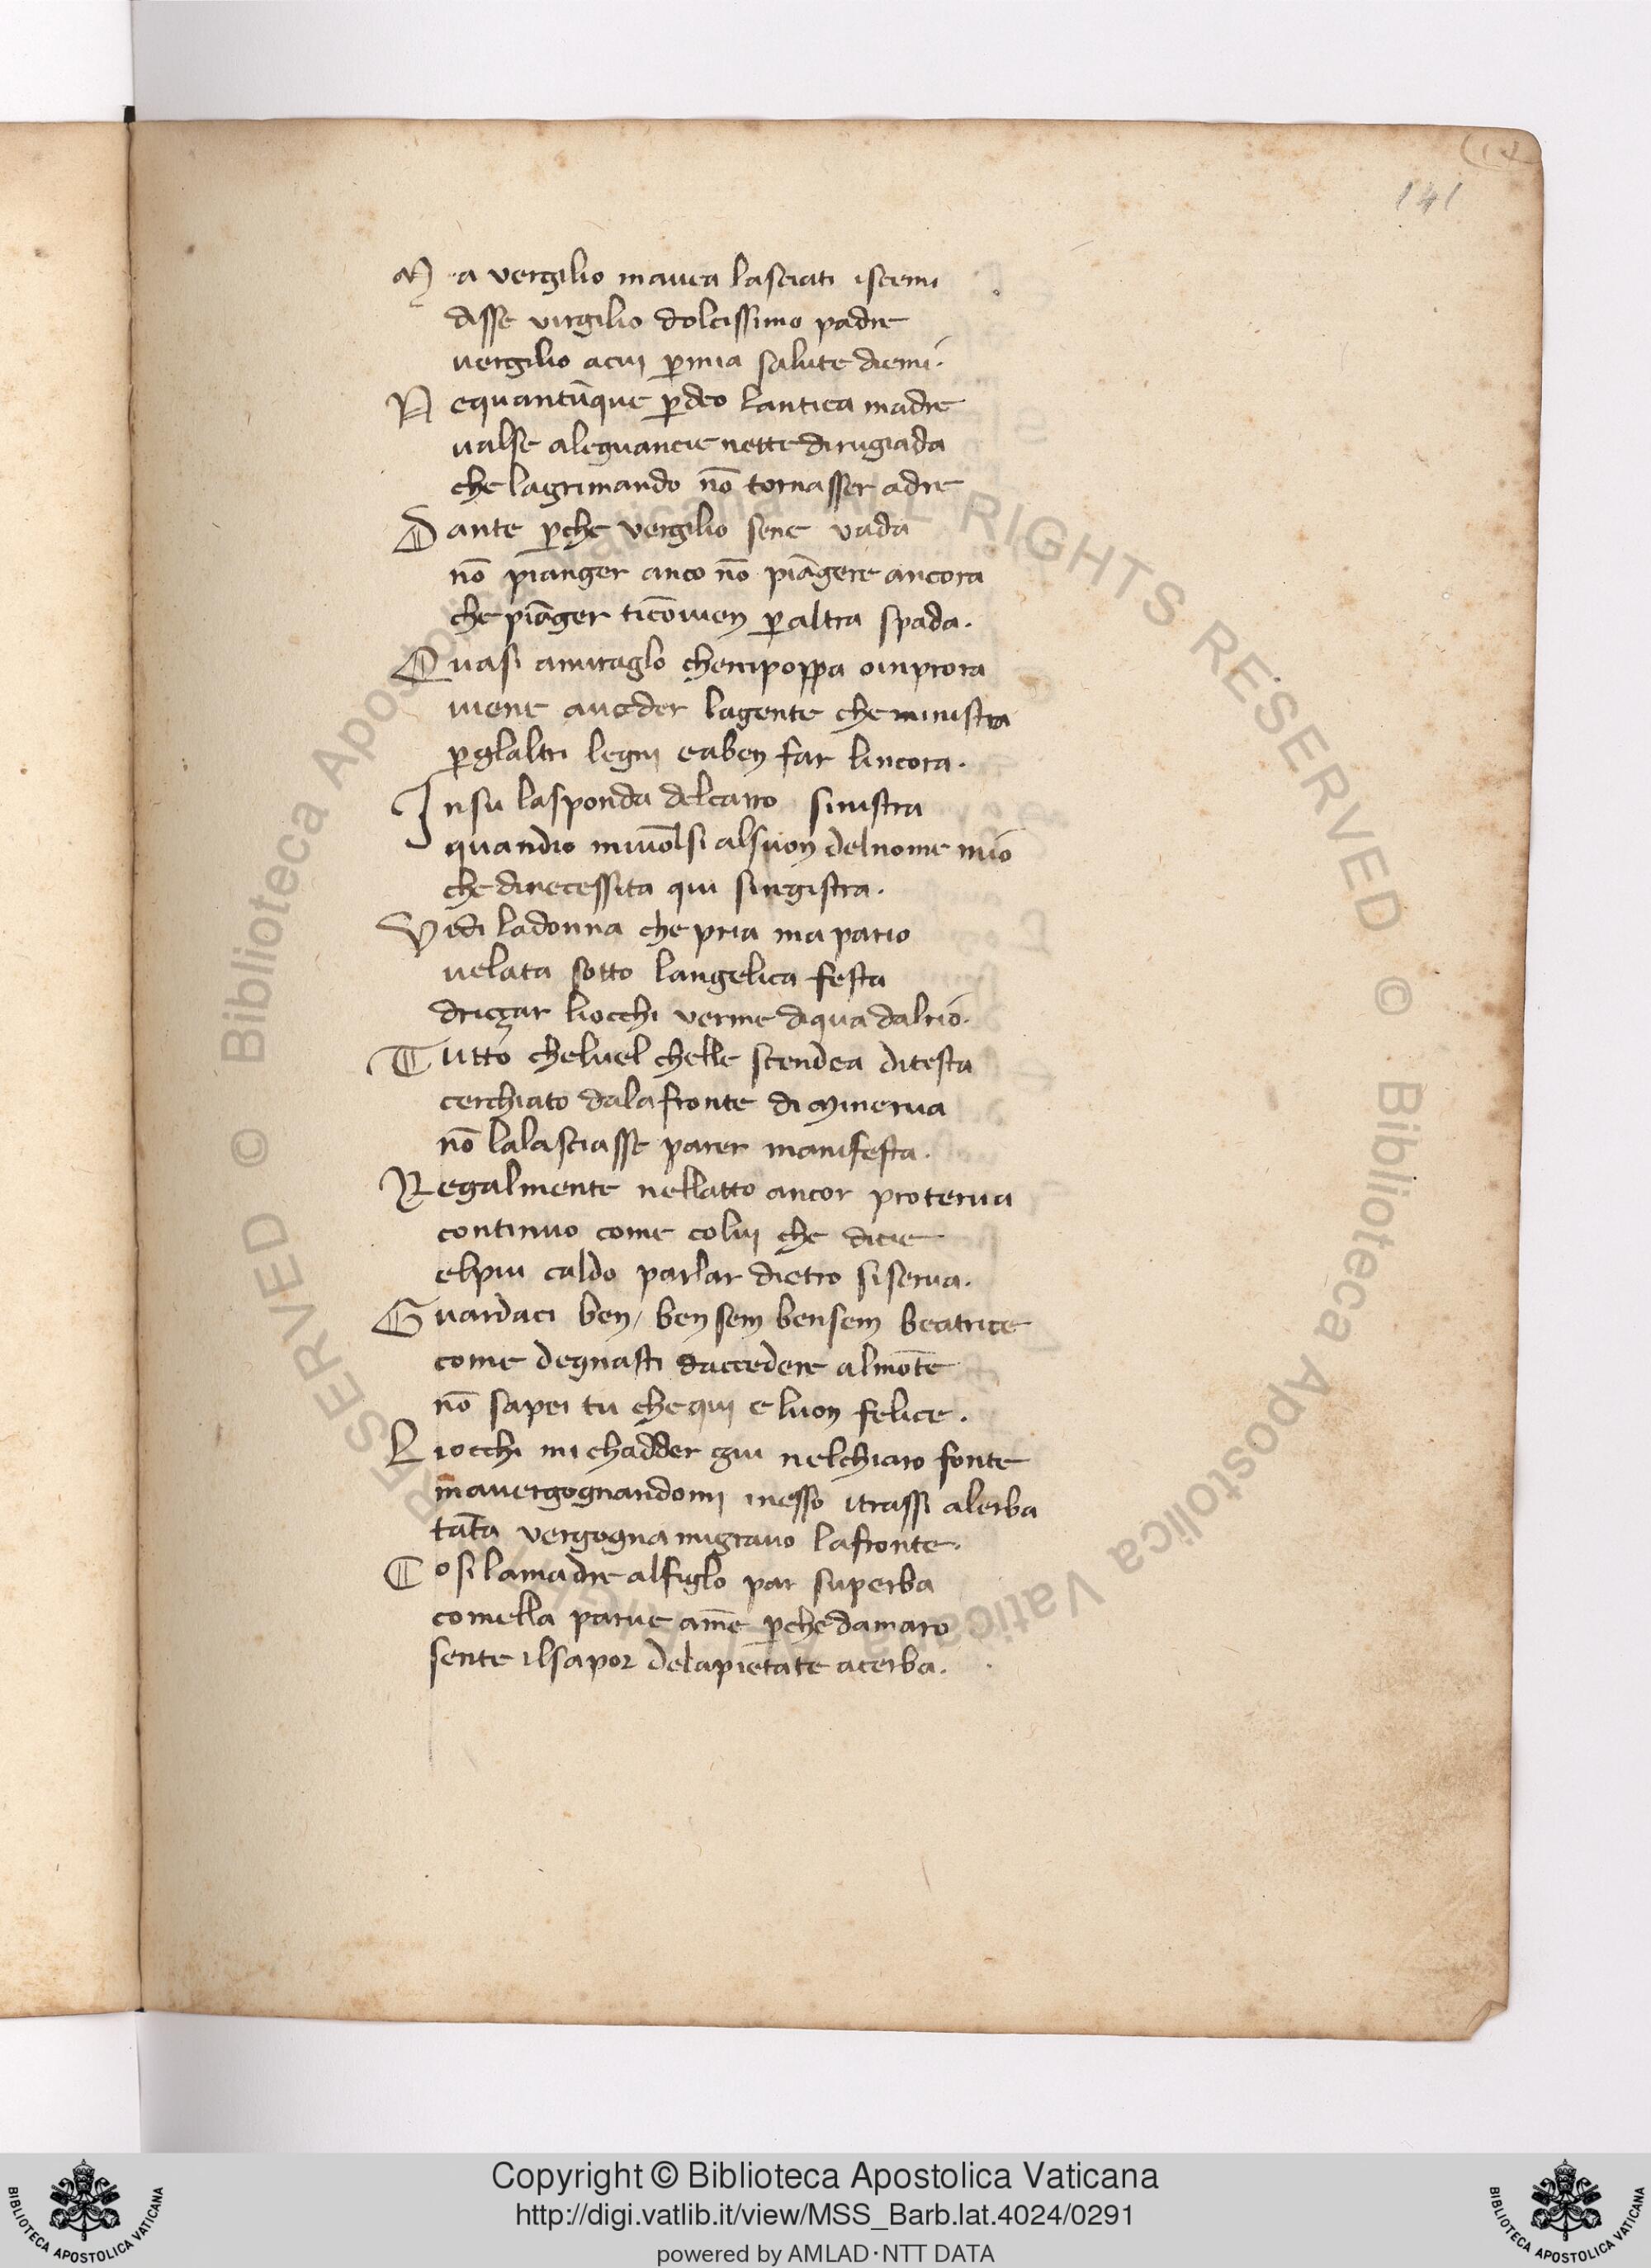 141
Ma vergilio mauea lasciati iscemi
disse virgilio dolcissimo padre
uergilio acui ꝑmia salute diemi.
Nequantūque ꝑdeo lantica madre
ualse aleguancie nette dirugiada
che lagrimando nō tornasser adre
Dante ꝑche vergilio sene vada
nō pianger anco nō piāgere ancora
che piāger ticōuien ꝑaltra spada.
Quasi amiraglo chenipoppa oinprora
uiene aueder lagente che ministra
ꝑglaltri legni eaben far lincora.
Insu lasponda delcarro sinistra
quandio miuolsi alsuon delnome mio
che dinecessita qui siregistra.
Vidi ladonna che pria mapario
uelata sotto langelica festa
driççar liocchi verme diqua dalrio.
Tutto cheluel chelle scendea ditesta
cerchiato dalafronte di minerua
nō lalasciasse parer manifesta.
Regalmente nellatto ancor proterua
continuo come colui che dicie
elpiu caldo parlar dietro siserua.
Guardaci ben/ ben sem bensem beatrice
come degnasti daccedere almōte
nō sapei tu che qui e luon felice.
Liocchi mi chadder giu nelchiaro fonte
mauergognandomi inesso itrassi alerba
tāta vergogna migrauo lafronte.
Cosi lamadre alfiglo par superba
comella parue amē ꝑche damaro
sente ilsapor delapietate acerba.
Copyright © Biblioteca Apostolica Vaticana
http://digi.vatlib.it/view/MSS_Barb.lat.4024/0291
powered by AMLAD·NTT DATA
BIBLIOTECA APOSTOLICA VATICANA
BIBLIOTECA APOSTOLICA VATICANA